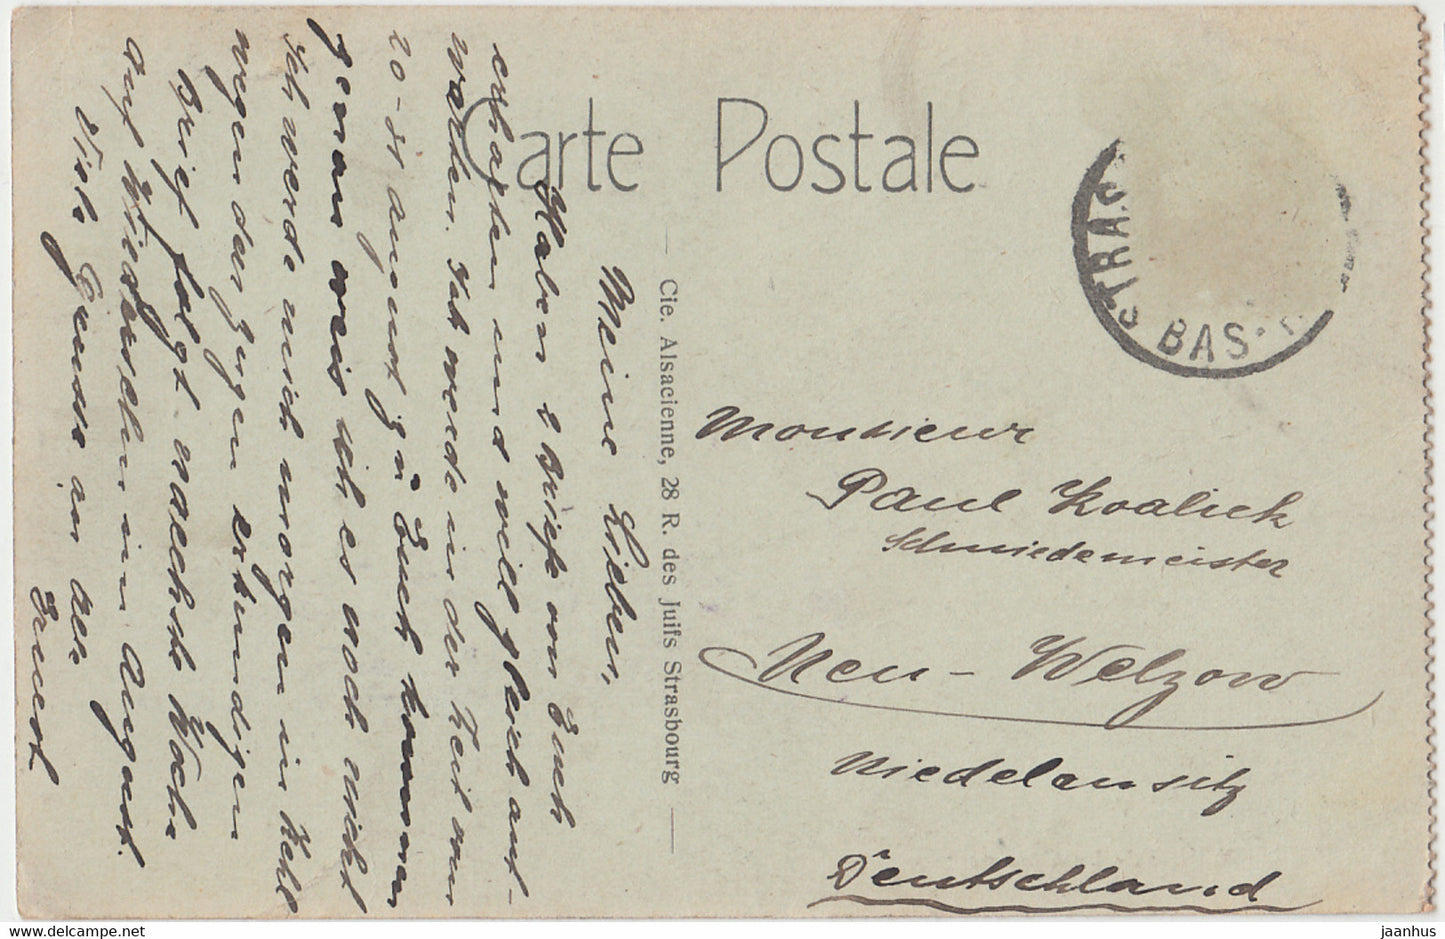 Carte Postale
STRAS
BAS-R
Cie. Alsacienne, 28 R. des Juifs Strasbourg
Monsieur
Paul Koalick
Schmiedemeister
Neu-Welzow
Niedelausitz
Deutschland
Meine Lieben,
Haben 2 Briefe von Euch
erhalten und will gleich ant-
worten. Ich werde in der Zeit vom
20-31 august zu Euch kommen
genau weis ich es noch nicht
Ich werde mich morgen in Kehl
wegen der zügen erkundigen
Brief folgt naechste Woche
Auf Wiedersehen im August.
Viele Gruesse an all
Ernest
delcampe.net
jaanhus